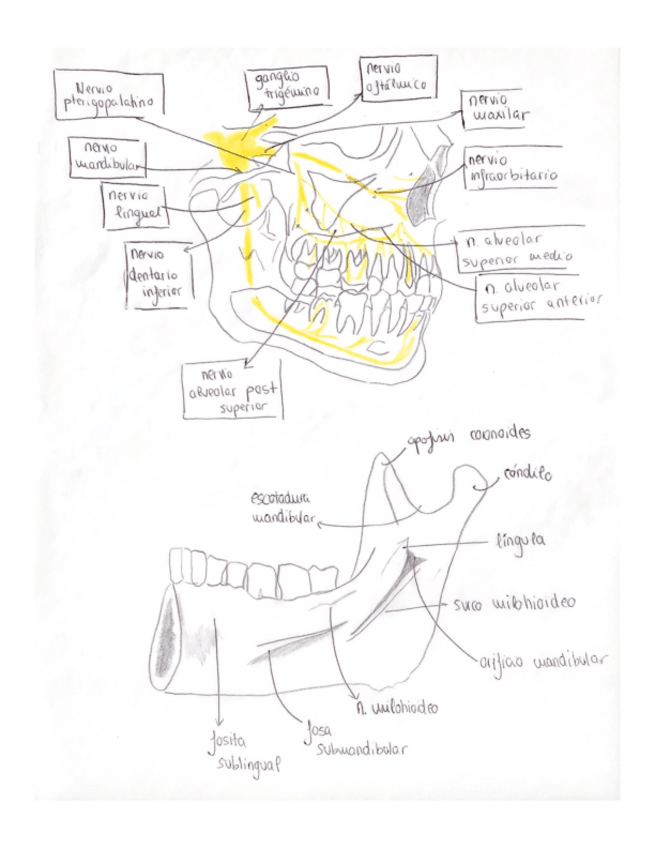 Nervio
pterigopalatino
ganglio
trigémino
nervio
oftálmico
nervio
maxilar
nervio
mandibular
nervio
infraorbitario
nervio
lingual
nervio
dentario
inferior
n. alveolar
superior medio
n. alveolar
superior anterior
nervio
alveolar post
superior
apofisis coronoides
cóndilo
escotadura
mandibular
língula
surco milohioideo
orificio mandibular
n. milohioideo
fosita
sublingual
fosa
submandibular